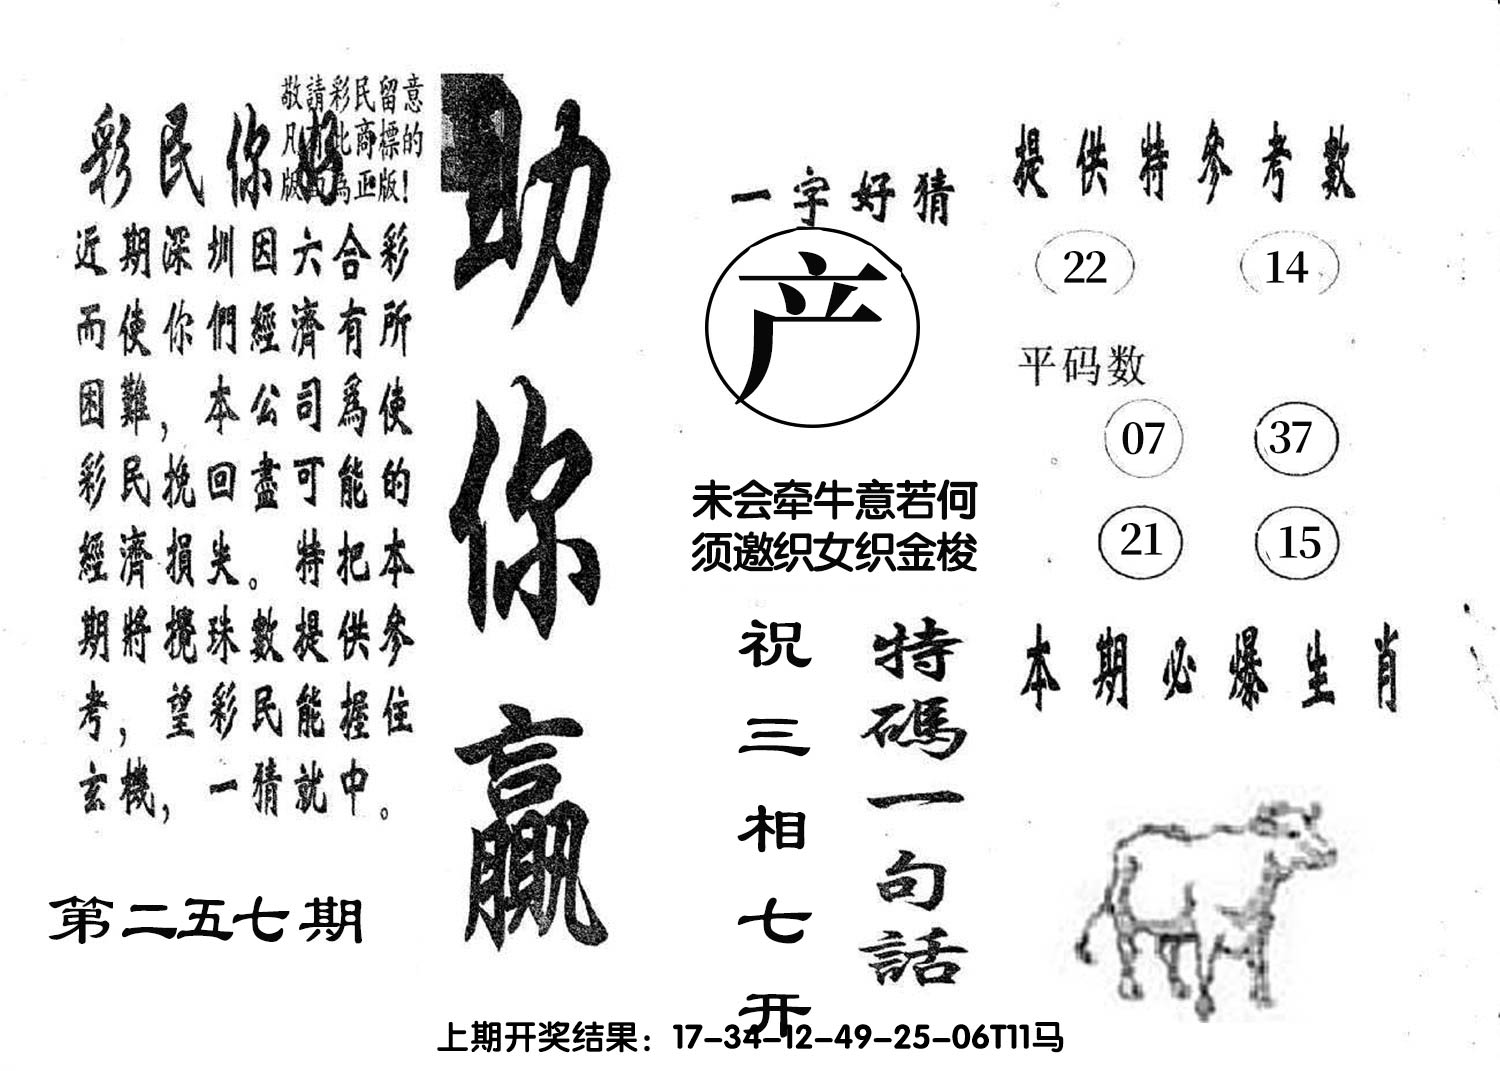 敬請彩民留意
凡有此商標的
版面為正版!
彩民你好
近期深圳因六合彩
而使你們經濟有所
困難，本公司爲使
彩民挽回盡可能的
經濟損失。特把本
期將攪珠數提供參
考，望彩民能握住
玄機，一猜就中。
第二五七期
助你贏
一字好猜
产
未会牵牛意若何
须邀织女织金梭
特碼一句話
祝三相七开
提供特參考數
22 14
平码数
07 37
21 15
本期必爆生肖
上期开奖结果：17-34-12-49-25-06T11马